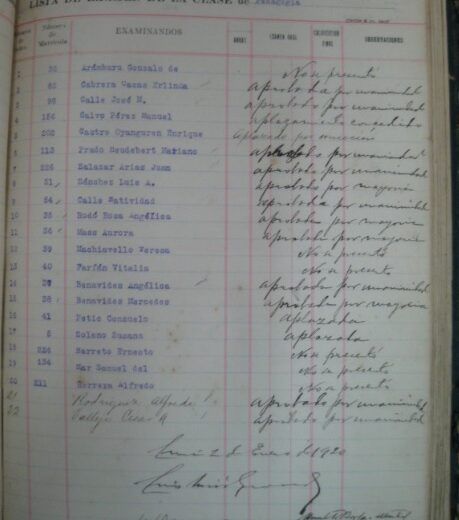 LISTA DE EXAMEN DE LA CLASE de Pedagogía
Número de Matrícula EXAMINANDOS AÑOS EXAMEN ORAL CALIFICACION OBSERVACIONES
1 30 Arámburu Gonzalo de No se presentó
2 62 Cabrera Erlinda aprobada por unanimidad
3 98 Calle José M. aprobado por unanimidad
4 156 Calvo Pérez Manuel aplazamiento concedido
5 202 Castro Oyanguren Enrique aplazado por
6 113 Prado Heudebert Mariano aprobado por unanimidad
7 226 Salazar Arias Juan aprobado por unanimidad
8 51 Sánchez Luis A. aprobado por mayoría
9 54 Calle Natividad aprobada por unanimidad
10 35 Rodó Rosa Angélica aprobada por mayoría
11 36 Mass Aurora aprobada por mayoría
12 39 Machiavello Verena No se presentó
13 40 Farfán Vitalia No se presentó
14 37 Benavides Angélica aprobada por unanimidad
15 38 Benavides Mercedes aprobada por mayoría
16 41 Petic Consuelo aplazada
17 5 Solano Susana aplazada
18 224 Barreto Ernesto No se presentó
19 134 Mar Samuel del No se presentó
20 211 Herrera Alfredo No se presentó
21 Rodríguez Alfredo aprobado por unanimidad
22 Vallejo César A aprobado por unanimidad
Lima 2 de Enero de 1920